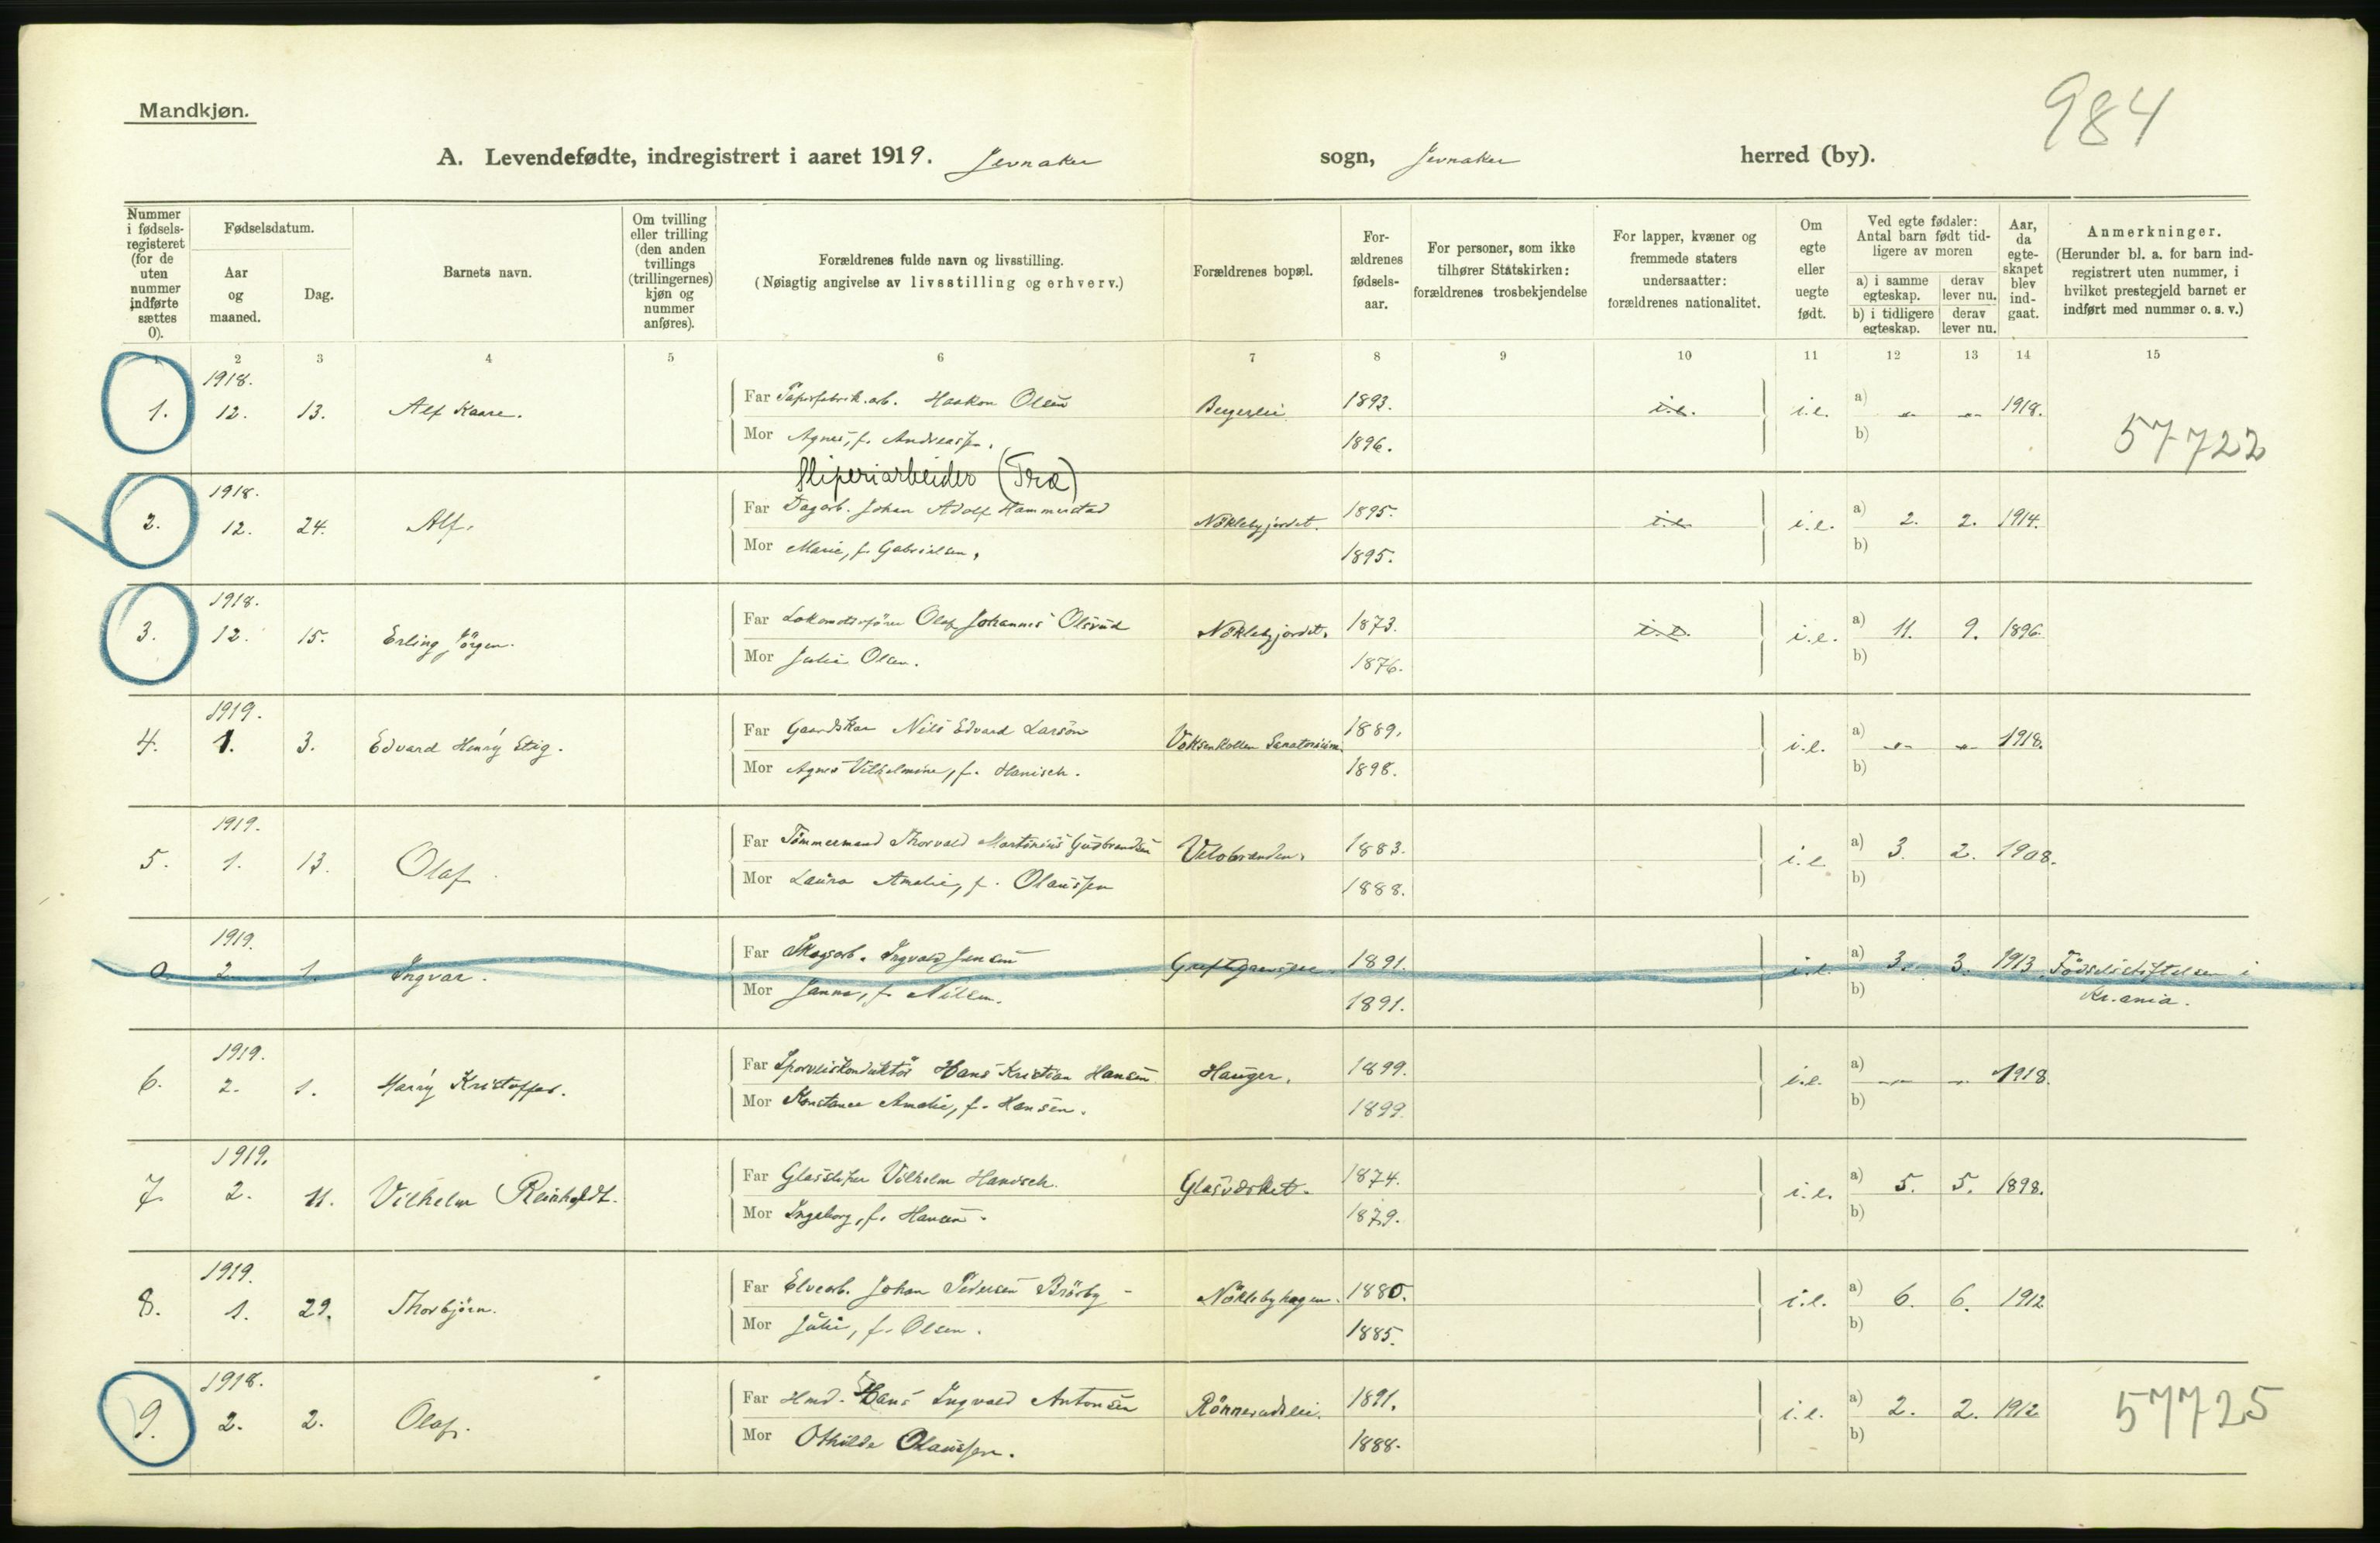 984
Mandkjøn.
A. Levendefødte, indregistrert i aaret 1919. Jevnaker sogn, Jevnaker herred (by).
Nummer i fødselsregisteret (for de uten nummer indførte sættes 0).
Fødselsdatum.
Aar og maaned.
Dag.
Barnets navn.
Om tvilling eller trilling (den anden tvillings (trillingernes) kjøn og nummer anføres).
Forældrenes fulde navn og livsstilling.
(Nøiagtig angivelse av livsstilling og erhverv.)
Forældrenes bopæl.
Forældrenes fødselsaar.
For personer, som ikke tilhører Statskirken: forældrenes trosbekjendelse
For lapper, kvæner og fremmede staters undersaatter: forældrenes nationalitet.
Om egte eller uegte født.
Ved egte fødsler: Antal barn født tidligere av moren
a) i samme egteskap.
derav lever nu.
b) i tidligere egteskap.
derav lever nu.
Aar, da egteskapet blev indgaat.
Anmerkninger.
(Herunder bl. a. for barn indregistrert uten nummer, i hvilket prestegjeld barnet er indført med nummer o. s. v.)
1 2 3 4 5 6 7 8 9 10 11 12 13 14 15
1918.
1. 12. 13. Alf Kaare. Far Papirfabrik.arb. Haakon Olsen 1893. i.e. i.e. a) 1918.
Mor Agnes, f. Andreassen. 1896. b)
57722
Sliperiarbeider (Træ)
1918.
2. 12. 24. Alf. Far Dagarb. Johan Adolf Hammerstad Nöklebyjordet. 1895. i.e. i.e. a) 2. 2. 1914.
Mor Marie, f. Gabrielsen, 1895. b)
1918.
3. 12. 15. Erling Jörgen. Far Lokomotivförer Olaf Johannes Olsrud Nöklebyjordet. 1873. i.e. i.e. a) 11. 9. 1896.
Mor Julie Olsen. 1876. b)
1919.
4. 1. 3. Edvard Henry Stig. Far Gaardskar Nils Edvard Larson Voksenkollen Sanatorium. 1889. i.e. a) 1918.
Mor Agnes Vilhelmine, f. Hanisch. 1898. b)
1919.
5. 1. 13. Olaf. Far Tömmermand Thorvald Martinius Gudbrandsen 1883. i.e. a) 3. 2. 1908.
Mor Laura Amalie, f. Olaussen 1888. b)
1919.
0. 2. 1. Ingvar. Far Skogsarb. Ingvald Jensen 1891. i.e. a) 3. 3. 1913 Födselsstiftelsen i
Mor Janna, f. Nilsen. 1891. b) Kr.ania.
1919.
6. 2. 1. Harry Kristoffer. Far Sporveiskonduktör Hans Kristian Hansen Hauger. 1899. i.e. a) 1918.
Mor Konstance Amalie, f. Hansen. 1899. b)
1919.
7. 2. 11. Vilhelm Reinholdt. Far Glassliper Vilhelm Handsch. Glasværket. 1874. i.e. a) 5. 5. 1898.
Mor Ingeborg, f. Hansen. 1879. b)
1919.
8. 1. 29. Thorbjörn. Far Elvearb. Johan Pedersen Bråtby Nöklebyhagen. 1880. i.e. a) 6. 6. 1912
Mor Julie, f. Olsen. 1885. b)
1918.
9. 2. 2. Olaf. Far Hmd. Hans Ingvald Antonsen Rönnerudslei. 1891. i.e. a) 2. 2. 1912
Mor Othilde Olaussen. 1888. b)
57725